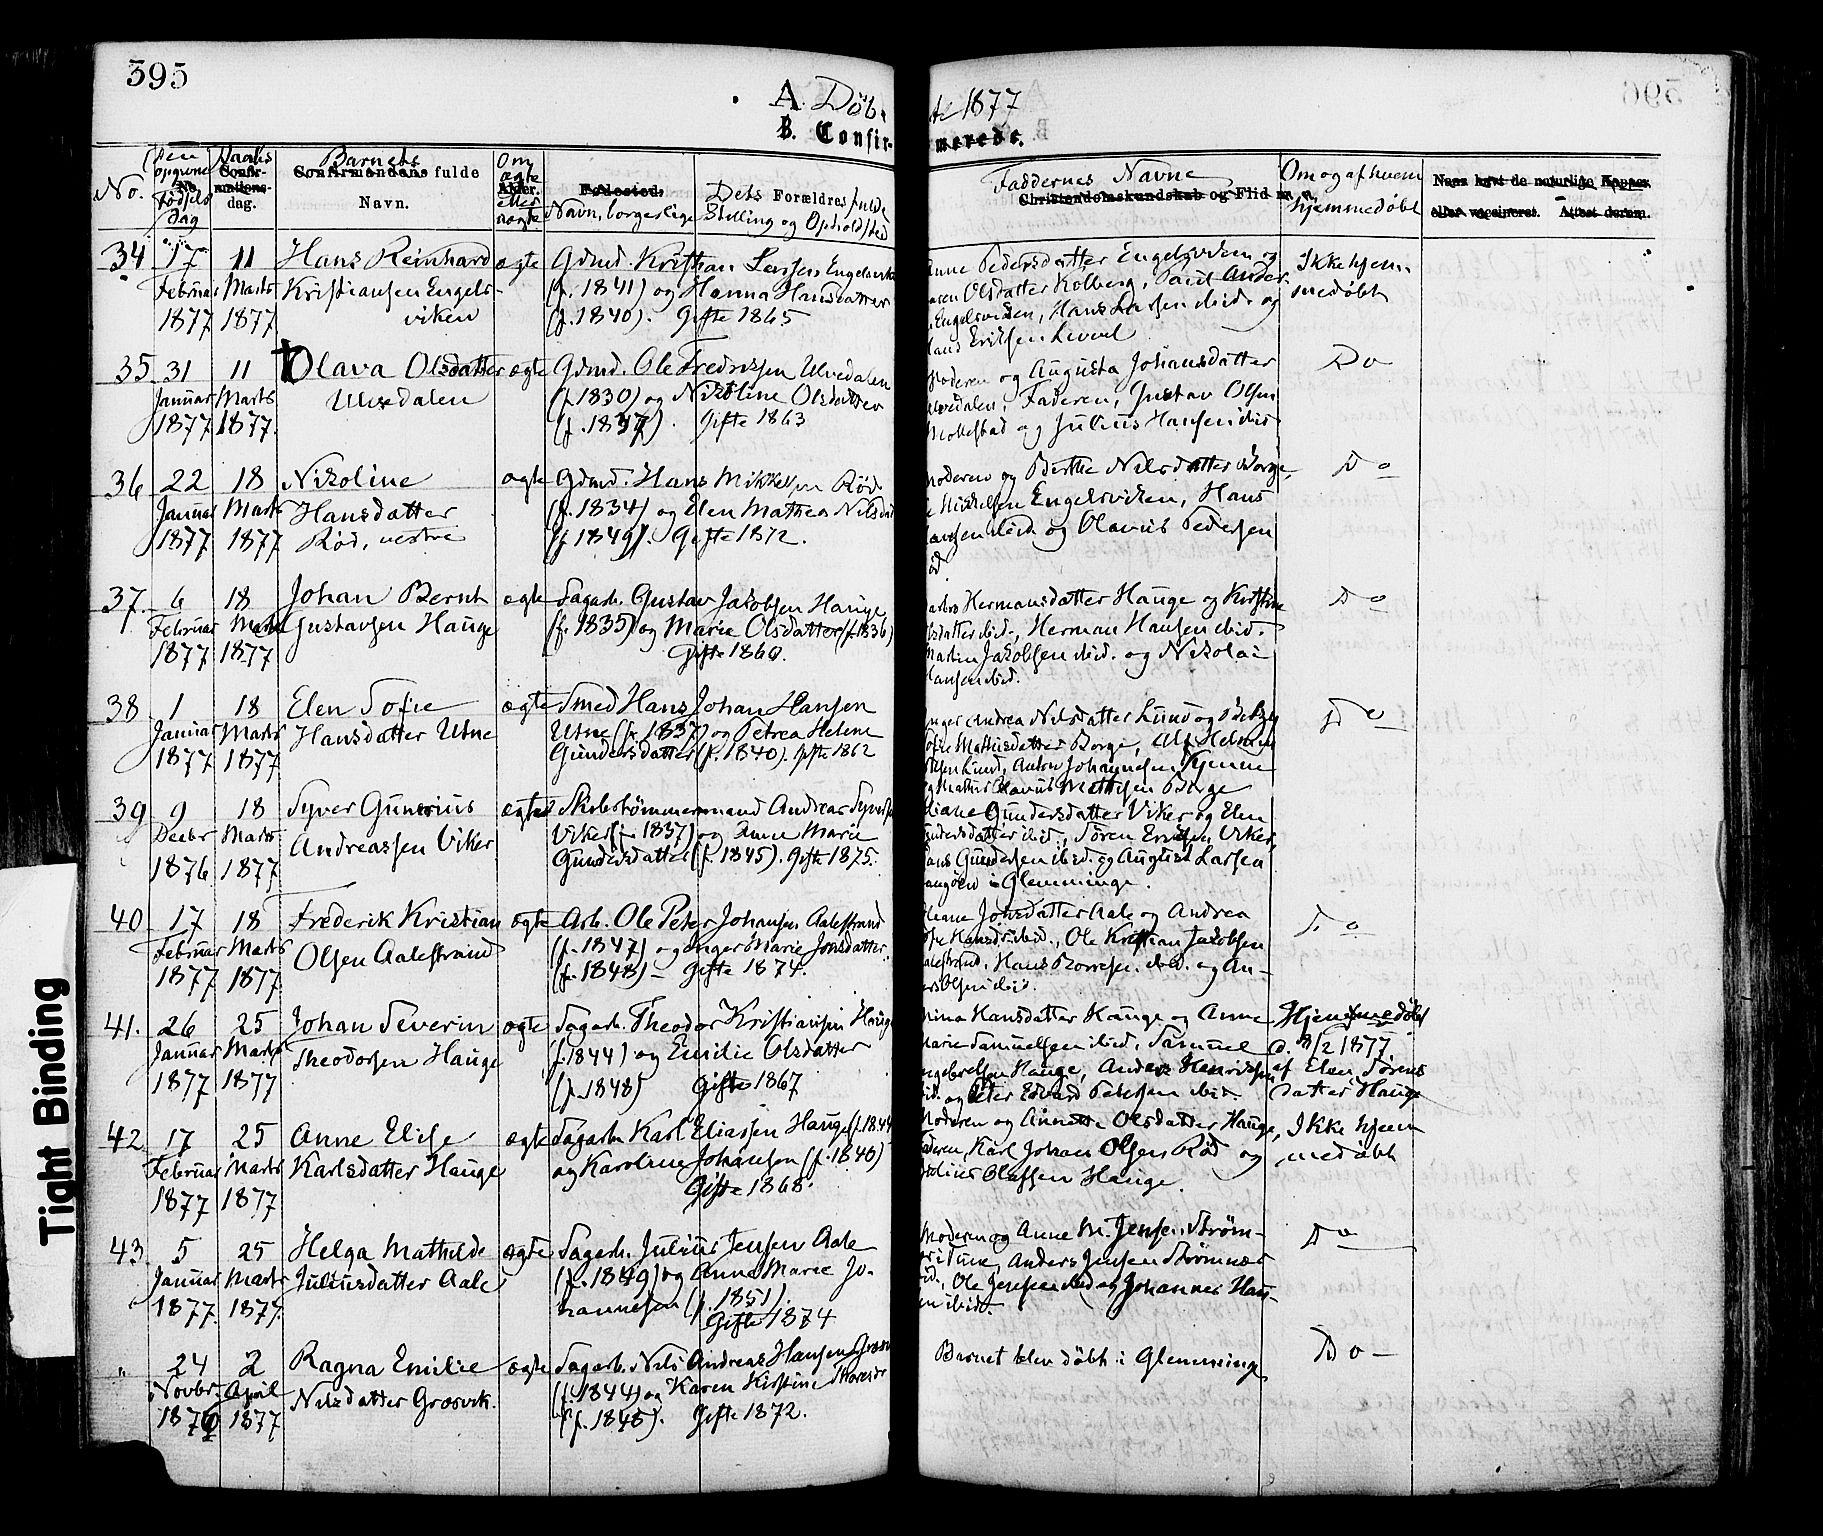 395
A. Døbte 1877
B. Confirmerede.
No.
Den opgivne Fødsels Dag
Daabs Confirmations- dag.
Barnets Confirmandens fulde Navn.
Om ægte eller uægte
Alder.
Fødested.
Dets Forældres fulde
Navn, borgerlige Stilling og Opholdsted
Faddernes Navne
Christendomskundskab og Flid m. m.
Om og af hvem hjemmedøbt
Naar havt de naturlige Kopper
eller vaccineret. Attest derom.
34 17 11 Hans Reinhard ægte Gdmd. Kristian Larsen Engelsvik
Februar Marts Kristiansen Engels- (f. 1841) og Hanna Hansdatter
1877 1877 viken (f. 1840). Gifte 1865
Anne Pedersdatter Engelsviken og Ikke hjem-
Olsdatter Kolberg, Paul Ander- medøbt
Engelsviken, Hans Larsen ibid. og
Eriksen
35 31 11 Olava Olsdatter ægte Gdmd. Ole Fredrissen Ulvedalen
Januar Marts Ulvedalen (f. 1830) og Nikoline Olsdatter
1877 1877. (f. 1837). Gifte 1863
Moderen og Augusta Johansdatter Do
Faderen, Gustav Olsen
og Julius Hansen ibid.
36 22 18 Nikoline ægte Gdmd. Hans Mikkelsen Rød
Januar Marts Hansdatter (f. 1834) og Elen Mathea Nilsdat
1877 1877 Rød, vestre (f. 1849). Gifte 1872.
Moderen og Berthe Nilsdatter Borge, Do
Mikkelsen Engelsviken, Hans
ibid og Olavus Pedersen
37. 6 18 Johan Bernt ægte Sagarb. Gustav Jakobsen Hauge
Februar Marts Gustavsen Hauge (f. 1835) og Marie Olsdatter (f. 1836)
1877 1877 Gifte 1860.
Hermansdatter Hauge og Kristine Do
ibid., Herman Hansen ibid.
Martin Jakobsen ibid. og Nikolai
Hansen ibid.
38 1 18 Elen Sofie ægte Smed Hans Johan Hansen
Januar Marts Hansdatter Utne Utne (f. 1837) og Petrea Helene
1877 1877 Gundersdatter (f. 1840). Gifte 1862
Inger Andrea Nilsdatter Lund og Do
Mathisdatter Borge,
Lund, Anton Johannesen
Olavus Mathisen Borge
39 9 18 Syver Gunerius ægte Skibstømmermand Andreas
Decbr Marts Andreassen Viker Viker (f. 1837) og Anne Marie
1876. 1877 Gundersdatter (f. 1845). Gifte 1875.
Gundersdatter Viker og Elen
ibid., Søren Viker,
Gundersen ibid. og August Larsen
i Glemminge.
40 17 18 Frederik Kristian ægte Arb. Ole Peter Johansen Aalestrand
Februar Marts Olsen Aalestrand (f. 1847) og Inger Marie Jonsdatter
1877 1877. (f. 1848) – Gifte 1874.
Jonsdatter Aale og Andrea Do
ibid., Ole Kristian Jakobsen
Hans ibid. og An-
ibid.
41. 26 25 Johan Severin ægte Sagarb. Theodor Kristiansen Hauge
Januar Marts Theodorsen Hauge (f. 1844) og Emilie Olsdatter
1877 1877 (f. 1848) Gifte 1867
Hansdatter Hauge og Anne Hjemmedøbt
Marie Samuelsen ibid., Samuel 1877
Hauge, Anders Henriksen af Elen Sørens
og Peter Edvard Petersen ibid. datter Hauge
42 17 25 Anne Elise ægte Sagarb. Karl Eliassen Hauge (f. 1844
Februar Marts Karlsdatter Hauge og Karoline Johansen (f. 1840)
1877 1877 Gifte 1868.
Moderen og Annette Olsdatter Hauge, Ikke hjem
Faderen, Karl Johan Olsen Rød og medøbt
Olafsen Hauge.
43. 5 25 Helga Mathilde ægte Sagarb. Julius Jensen Aale
Januar Marts Juliusdatter Aale (f. 1849) og Anne Marie Jo-
1877. 1877. hannesen (f. 1851).
Gifte 1874
Moderen og Anne M. Jensen Strøm- Do
i Tune, Anders Jensen Strømnæs
ibid., Ole Jensen ibid og Johannes Han-
ibid.
" 24 2 Ragna Emilie ægte Sagarb. Nils Andreas Hansen
Novbr. April Nilsdatter Grosvik. (f. 1844) og Karen Kirstine
1876 1877 (f. 1848). Gifte 1872.
Barnet blev døbt i Glemminge Do
Tight Binding